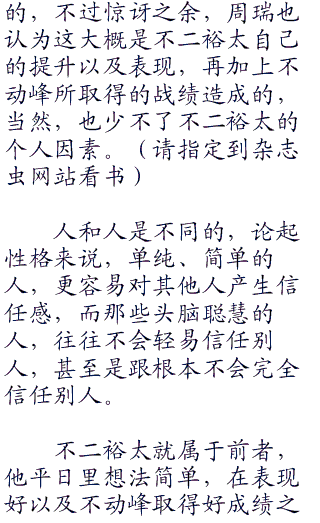 的，不过惊讶之余，周瑞也
认为这大概是不二裕太自己
的提升以及表现，再加上不
动峰所取得的战绩造成的，
当然，也少不了不二裕太的
个人因素。（请指定到杂志
虫网站看书）
人和人是不同的，论起
性格来说，单纯、简单的
人，更容易对其他人产生信
任感，而那些头脑聪慧的
人，往往不会轻易信任别
人，甚至是跟根本不会完全
信任别人。
不二裕太就属于前者，
他平日里想法简单，在表现
好以及不动峰取得好成绩之